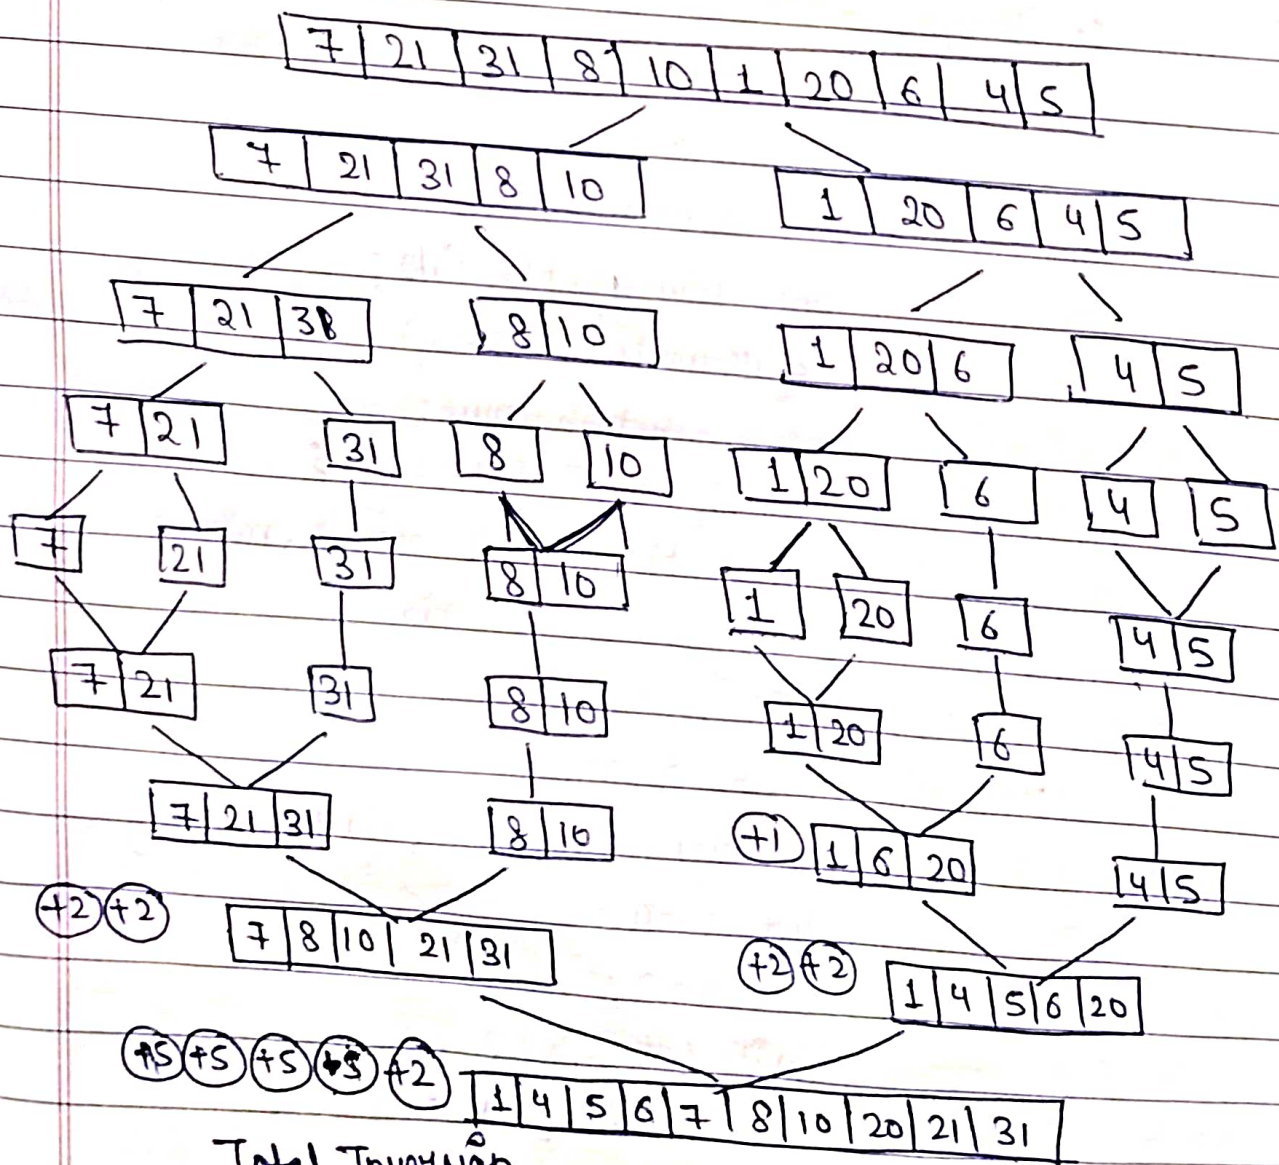 7 21 31 8 10 1 20 6 4 5
7 21 31 8 10
1 20 6 4 5
7 21 31
8 10
1 20 6
4 5
7 21
31
8
10
1 20
6
4
5
7
21
31
8 10
1
20
6
4 5
7 21
31
8 10
1 20
6
4 5
7 21 31
8 10
+1
1 6 20
4 5
+2 +2
7 8 10 21 31
+2 +2
1 4 5 6 20
+5 +5 +5 +5 +2
1 4 5 6 7 8 10 20 21 31
Total Inversion